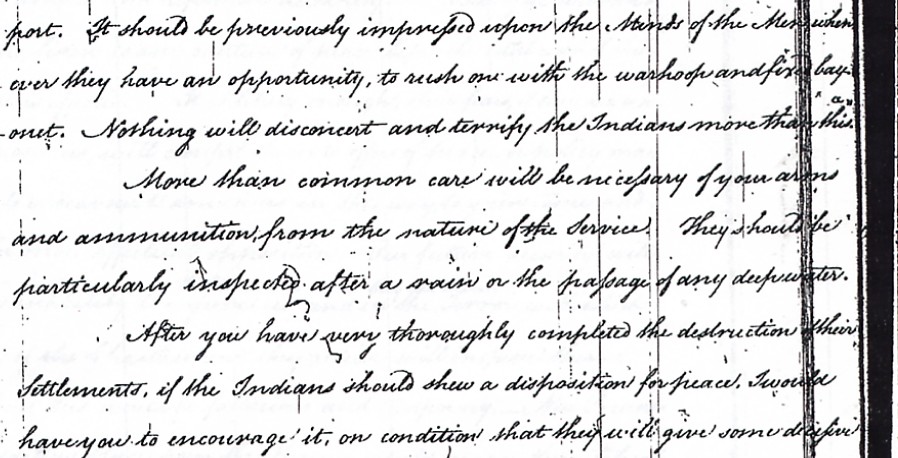 port. It should be previously impressed upon the Minds of the Men when
ever they have an opportunity, to rush on with the warhoop and fixed bay-
onet. Nothing will disconcert and terrify the Indians more than this.
More than common care will be necessary of your arms
and ammunition, from the nature of the Service. They should be
particularly inspected after a rain or the passage of any deep water.
After you have very thoroughly completed the destruction of their
Settlements, if the Indians should shew a disposition for peace, I would
have you to encourage it, on condition that they will give some decisive